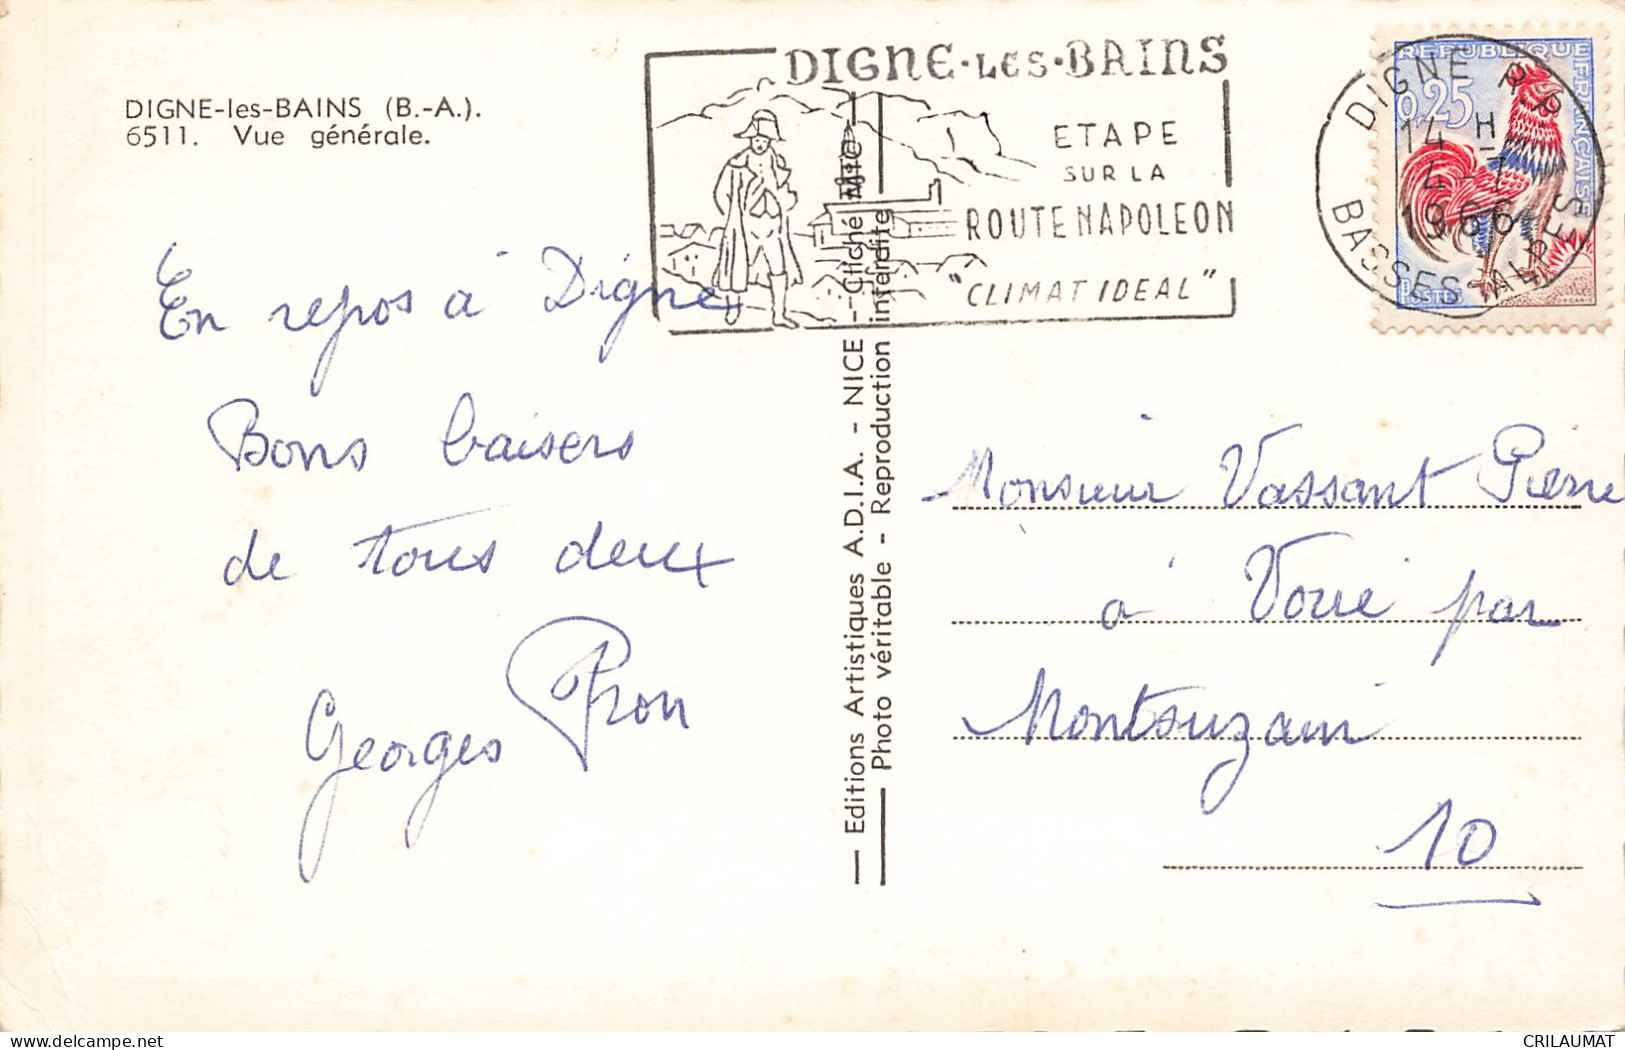 DIGNE-les-BAINS (B.-A.).
6511. Vue générale.
DIGNE-LES-BAINS
ETAPE
SUR LA
ROUTE NAPOLEON
"CLIMAT IDEAL"
REPUBLIQUE FRANÇAISE
0,25
POSTES
DECARIS
DIGNE R.P.
14 H
4-7
1966
BASSES-ALPES
En repos à Digne
Bons baisers
de tous deux
Georges Pron
— Editions Artistiques A.D.I.A. - NICE - Cliché MIC
Photo véritable - Reproduction interdite
Monsieur Vassant Pierre
à Voué par
Montsuzain
10
CRILAUMAT